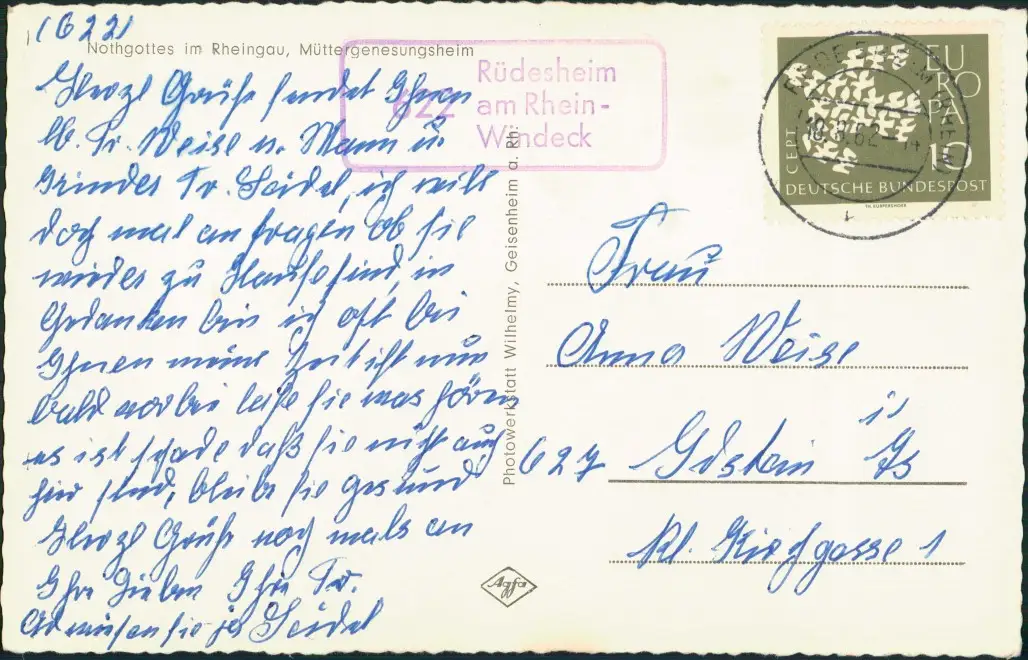 (622)
Nothgottes im Rheingau, Müttergenesungsheim
Herzl Grüße sendet Ihnen
lb. Fr. Weise u. Mann u.
Kinder Fr. Seidel, ich will
doch mal anfragen ob sie
wieder zu Hause sind, in
Gedanken bin ich oft bei
Ihnen meine Zeit ist nun
bald vorbei laße sie was hören
es ist schade daß sie nicht auch
hier sind, bleibe sie gesund
Herzl Grüße noch mals an
Ihre Lieben Ihre Fr.
Seidel
622
Rüdesheim
am Rhein-
Windeck
Photowerkstatt Wilhelmy, Geisenheim a. Rh.
Agfa
EU
RO
PA
10
CEPT
DEUTSCHE BUNDESPOST
Frau
Anna Weise
627 Idstein i/Ts
Kl. Kirchgasse 1